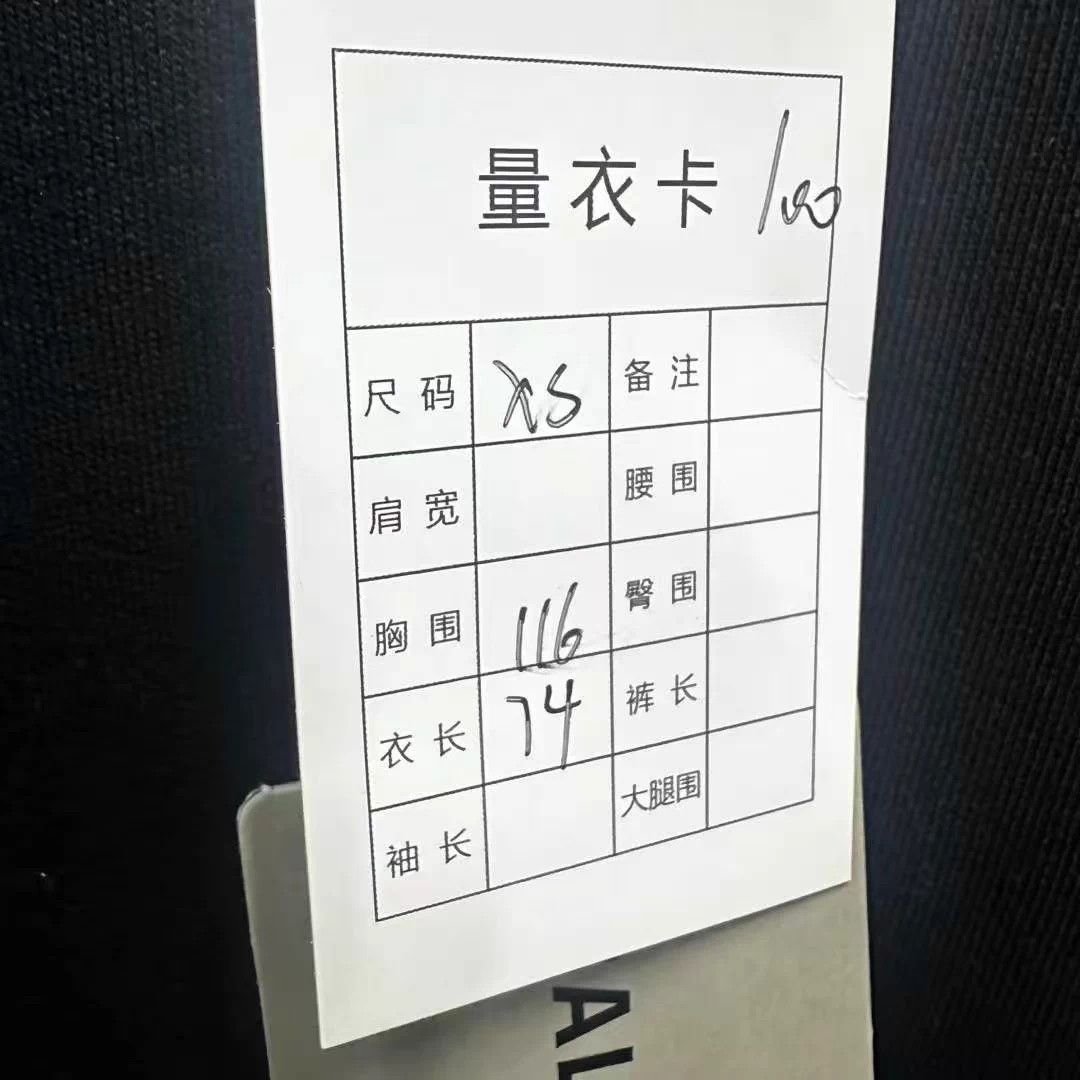 量衣卡 100
尺码 XS 备注
肩宽 腰围
胸围 116 臀围
衣长 74 裤长
袖长 大腿围
AL